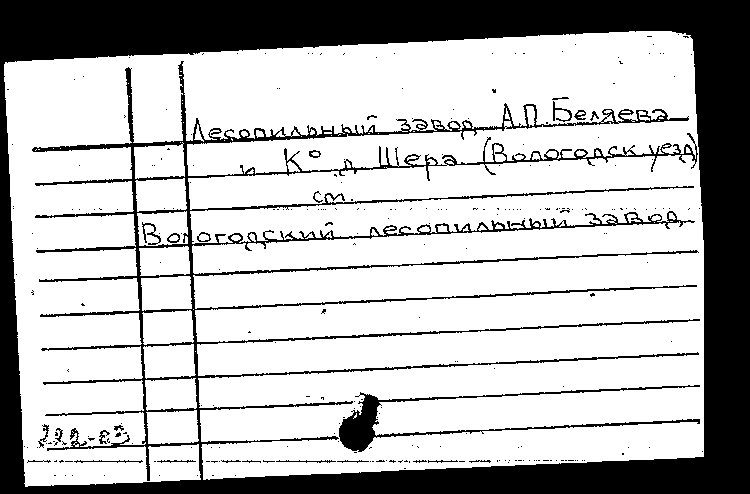 Лесопильный завод А.П.Беляева
и К° д Шера (Вологодск уезд)
см.
Вологодский лесопильный завод